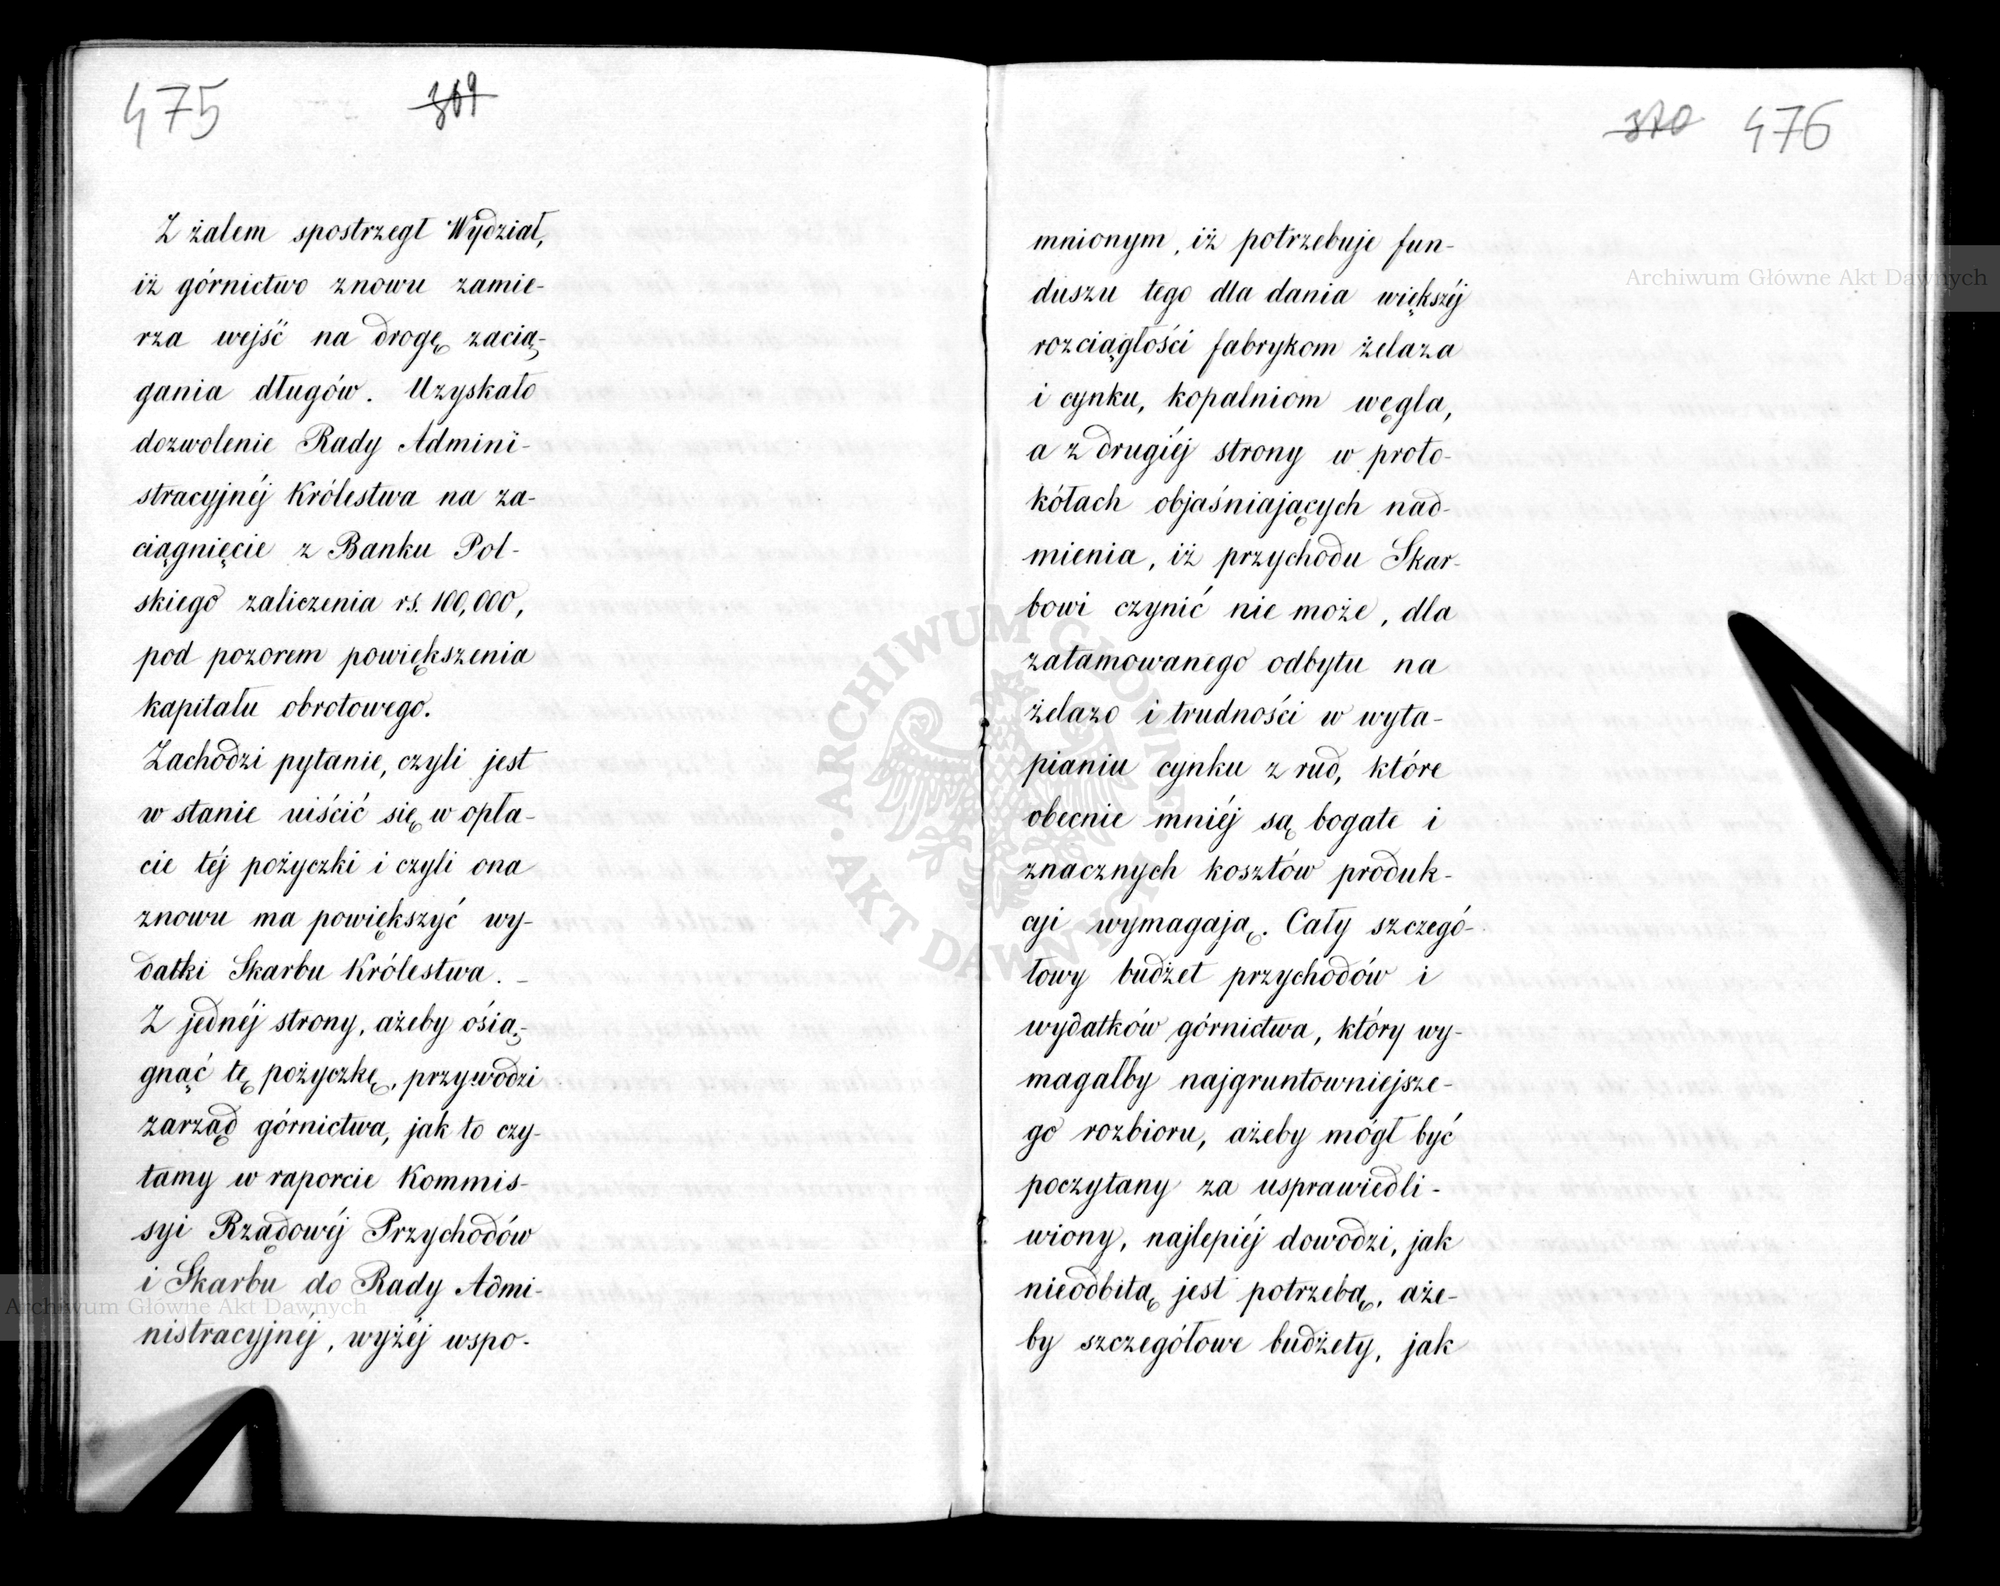 475 369
Z żalem spostrzegł Wydział,
iż górnictwo znowu zamie-
rza wejść na drogę zacią-
gania długów. Uzyskało
dozwolenie Rady Admini-
stracyjnéj Królestwa na za-
ciągnięcie z Banku Pol-
skiego zaliczenia rs. 100,000,
pod pozorem powiększenia
kapitału obrotowego.
Zachodzi pytanie, czyli jest
w stanie uiścić się w opła-
cie téj pożyczki i czyli ona
znowu ma powiększyć wy-
datki Skarbu Królestwa. –
Z jednéj strony, ażeby osią-
gnąć tę pożyczkę, przywodzi
zarząd górnictwa, jak to czy-
tamy w raporcie Kommis-
syi Rządowéj Przychodów
i Skarbu do Rady Admi-
nistracyjnéj, wyżéj wspo-
370 476
mnionym, iż potrzebuje fun-
duszu tego dla dania większéj
rozciągłości fabrykom żelaza
i cynku, kopalniom węgla,
a z drugiéj strony w proto-
kółach objaśniających nad-
mienia, iż przychodu Skar-
bowi czynić nie może, dla
zatamowanego odbytu na
żelazo i trudności w wyta-
pianiu cynku z rud, które
obecnie mniéj są bogate i
znacznych kosztów produk-
cyi wymagają. Cały szczegó-
łowy budżet przychodów i
wydatków górnictwa, który wy-
magałby najgruntowniejsze-
go rozbioru, ażeby mógł być
poczytany za usprawiedli-
wiony, najlepiéj dowodzi, jak
nieodbitą jest potrzebą, aże-
by szczegółowe budżety, jak
Archiwum Główne Akt Dawnych
Archiwum Główne Akt Dawnych
ARCHIWUM GŁÓWNE AKT DAWNYCH